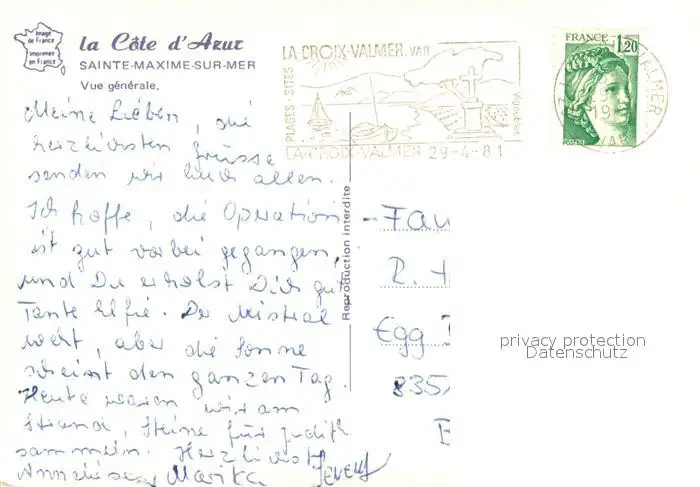 Image
de France
Imprimée
en France
la Côte d'Azur
SAINTE-MAXIME-SUR-MER
Vue générale.
PLAGES - SITES
LA CROIX-VALMER. VAR
Vignobles
LA-CROIX-VALMER 29-4-81
FRANCE
1,20
POSTES
VALMER
VAR
Reproduction interdite
Meine Lieben, die
herzlichsten Grüsse
senden wir Euch allen.
Ich hoffe, die Operation
ist gut vorbei gegangen,
und Du erholst Dich gut
Tante Elfie. Der Mistral
weht, aber die Sonne
scheint den ganzen Tag.
Heute waren wir am
Strand, Steine für Judith
sammeln. Herzlichst
Marika
Fam
R. H
Egg
835
privacy protection
Datenschutz